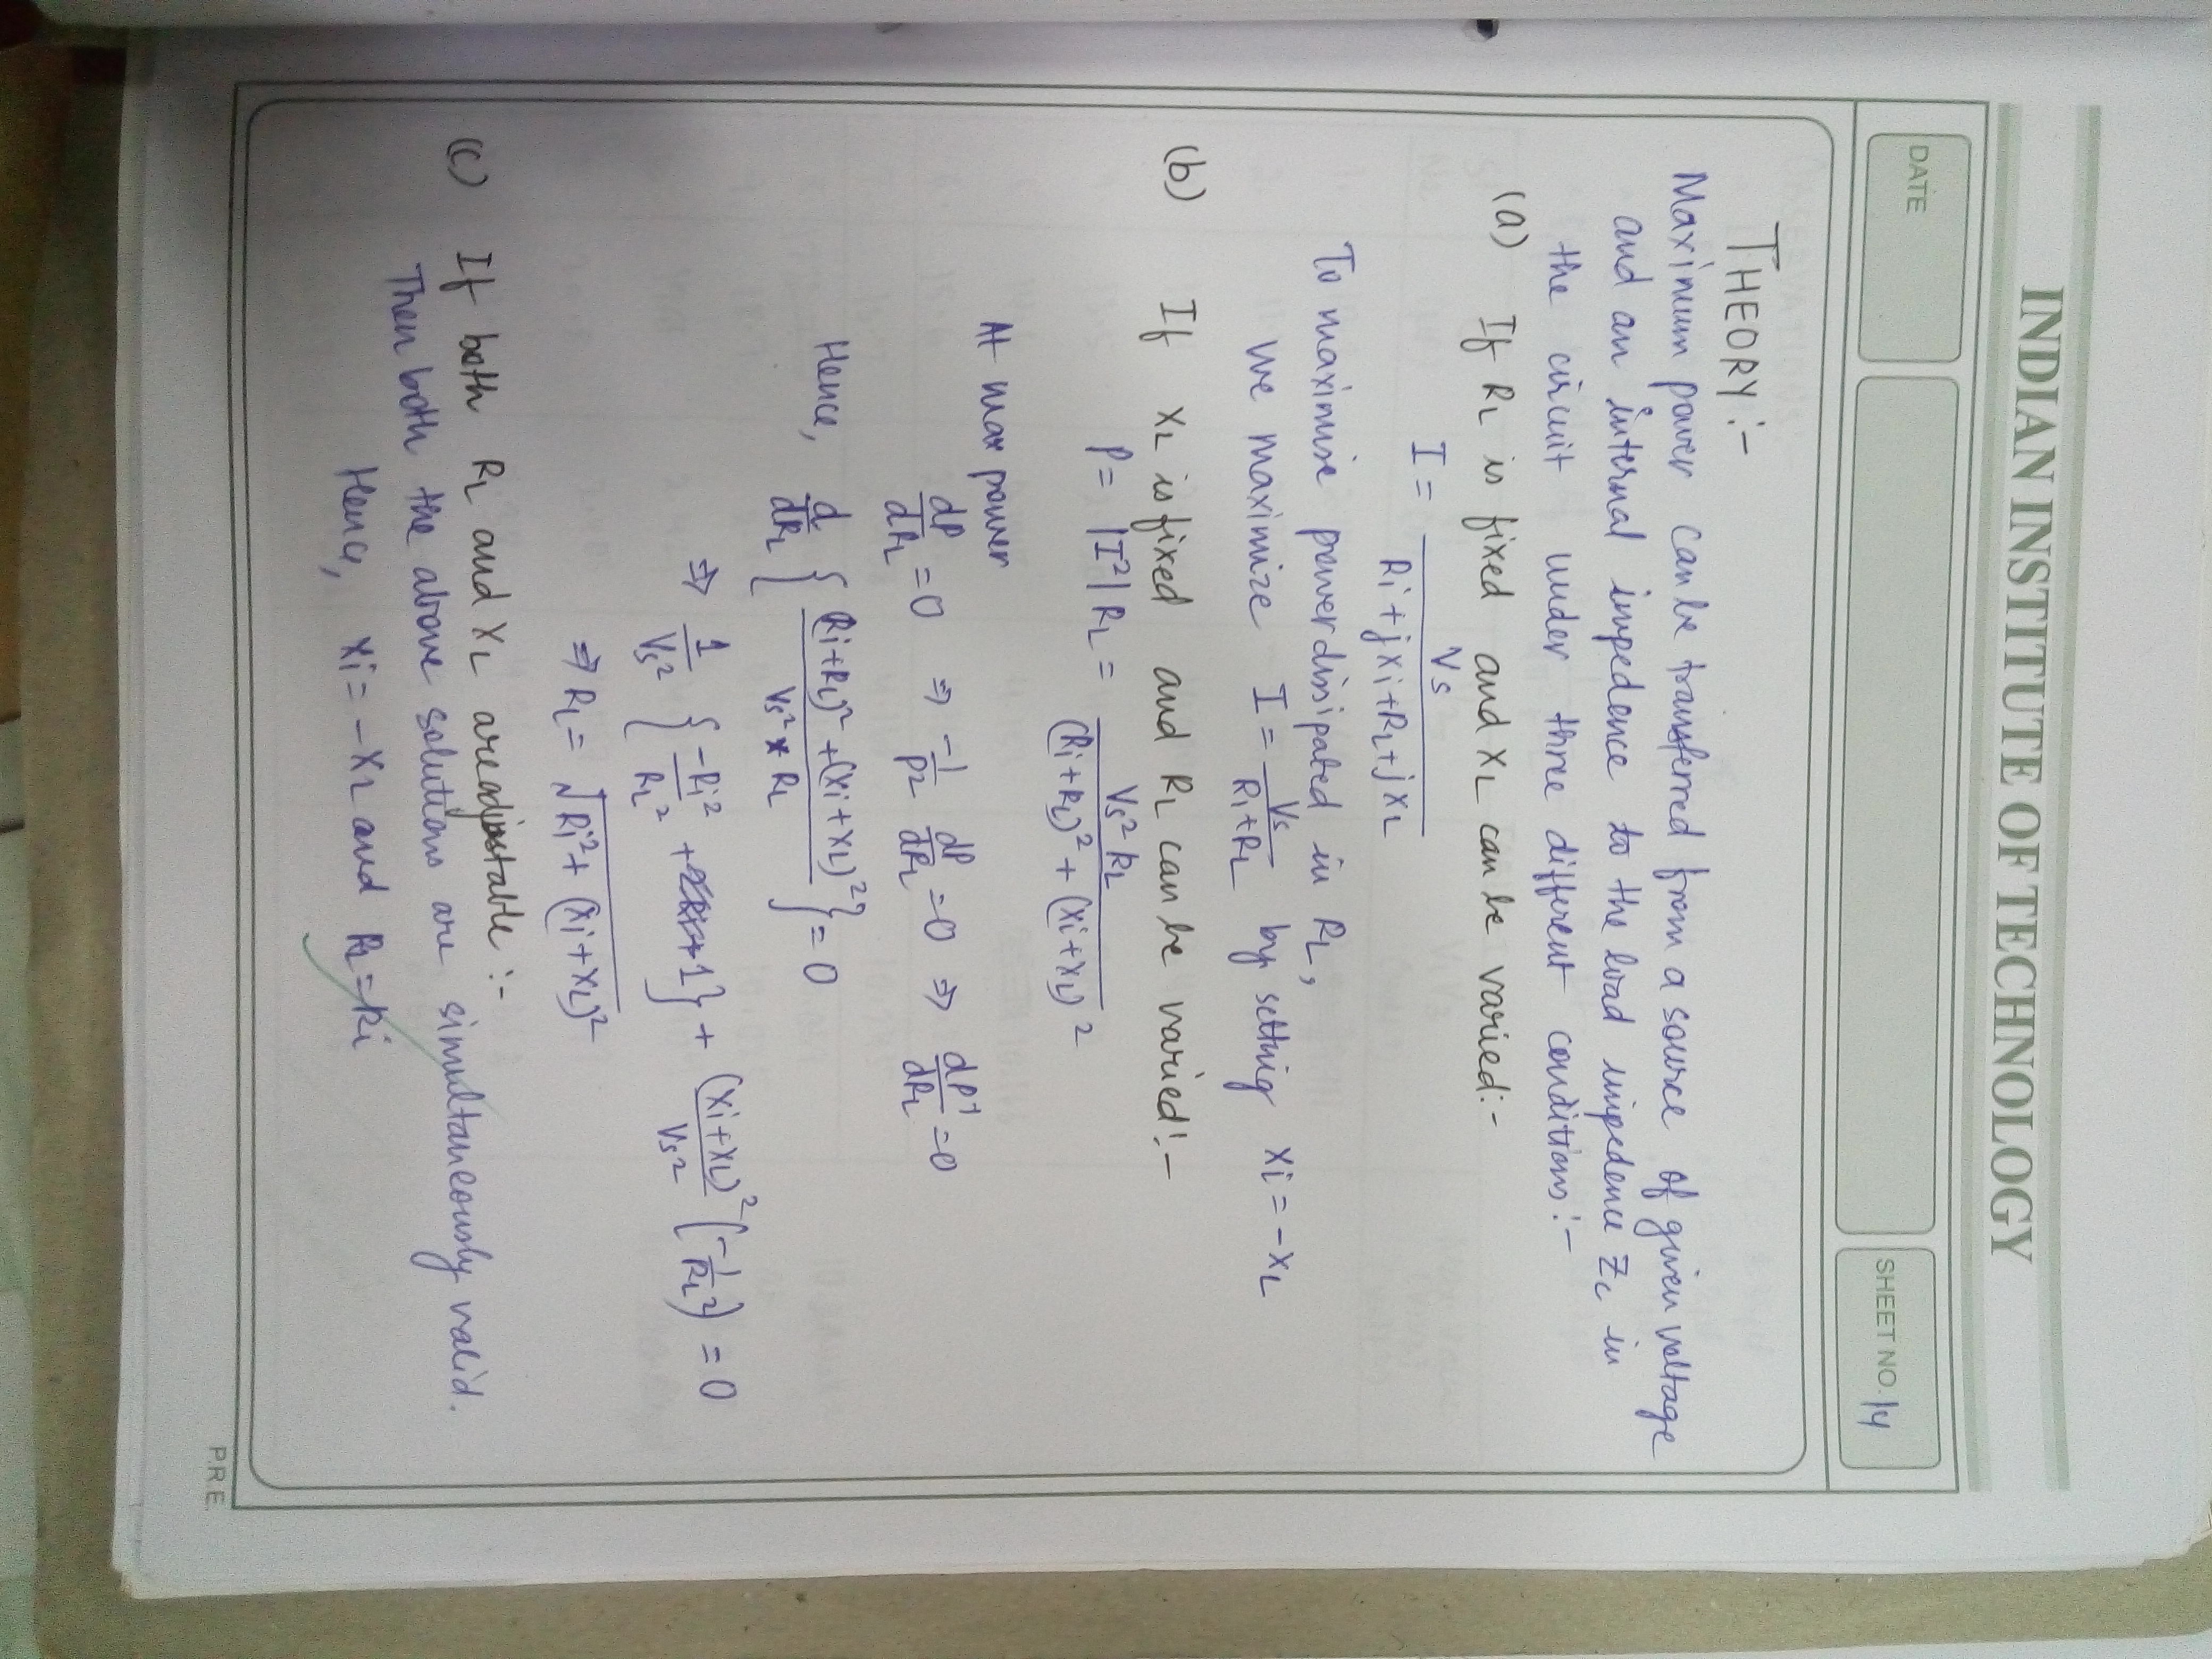 INDIAN INSTITUTE OF TECHNOLOGY
DATE
SHEET NO. 14
THEORY :-
Maximum power can be transferred from a source of given voltage
and an internal impedence to the load impedence Zc in
the circuit under three different conditions :-
(a) If RL is fixed and XL can be varied:-
I = Vs / (Ri + jXi + RL + jXL)
To maximise power dissipated in RL,
we maximize I = Vs / (Ri + RL) by setting Xi = -XL
(b) If XL is fixed and RL can be varied:-
P = |I²| RL = Vs² RL / ((Ri + RL)² + (Xi + XL)²)
At max power
dP/dRL = 0 ⇒ -1/P² dP/dRL = 0 ⇒ dP⁻¹/dRL = 0
Hence, d/dRL { ((Ri + RL)² + (Xi + XL)²) / (Vs² * RL) } = 0
⇒ 1/Vs² { -Ri²/RL² + 1 } + (Xi + XL)²/Vs² (-1/RL²) = 0
⇒ RL = √(Ri² + (Xi + XL)²)
(c) If both RL and XL are adjustable :-
Then both the above solutions are simultaneously valid.
Hence, Xi = -XL and RL = Ri
P.R.E.